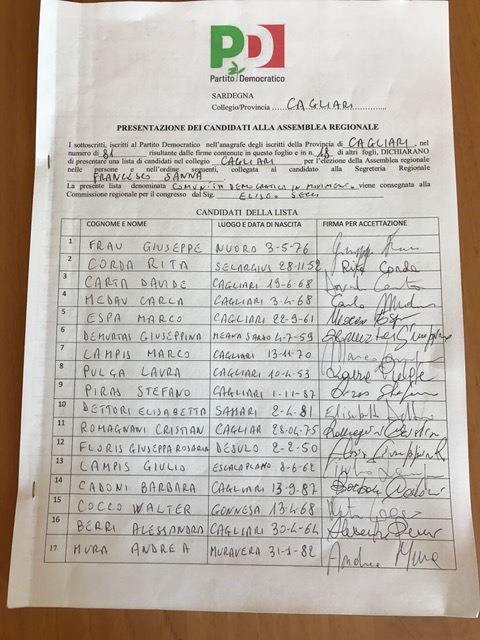 PD
Partito Democratico
SARDEGNA
Collegio/Provincia CAGLIARI
PRESENTAZIONE DEI CANDIDATI ALLA ASSEMBLEA REGIONALE
I sottoscritti, iscritti al Partito Democratico nell'anagrafe degli iscritti della Provincia di CAGLIARI, nel
numero di 81 risultante dalle firme contenute in questo foglio e in n. 18 di altri fogli, DICHIARANO
di presentare una lista di candidati nel collegio CAGLIARI per l'elezione della Assemblea regionale
nelle persone e nell'ordine seguenti, collegata al candidato alla Segreteria Regionale
FRANCESCO SANNA
La presente lista denominata COMUNITÀ DEMOCRATICA IN MOVIMENTO viene consegnata alla
Commissione regionale per il congresso dal Sig. ELISEO SECCI
CANDIDATI DELLA LISTA
COGNOME E NOME LUOGO E DATA DI NASCITA FIRMA PER ACCETTAZIONE
1 FRAU GIUSEPPE NUORO 3-5-76
2 CORDA RITA SELARGIUS 28-11-52 Rita Corda
3 CARTA DAVIDE CAGLIARI 19-6-68
4 MEDAU CARLA CAGLIARI 3-4-68
5 ESPA MARCO CAGLIARI 22-9-61
6 DEMURTAS GIUSEPPINA MEANA SARDO 4-7-59
7 LAMPIS MARCO CAGLIARI 13-11-70
8 PULGA LAURA CAGLIARI 10-4-53
9 PIRAS STEFANO CAGLIARI 1-11-87
10 DETTORI ELISABETTA SASSARI 2-4-81
11 ROMAGNANI CRISTIAN CAGLIAR 28-04-75
12 FLORIS GIUSEPPA ROSARIA DESULO 2-2-50
13 LAMPIS GIULIO ESCALAPLANO 8-6-62
14 CADONI BARBARA CAGLIARI 13-9-87
15 COCCO WALTER GONNESA 13-4-68
16 BERRI ALESSANDRA CAGLIARI 30-4-64
17 MURA ANDREA MURAVERA 31-1-82 Andrea Mura